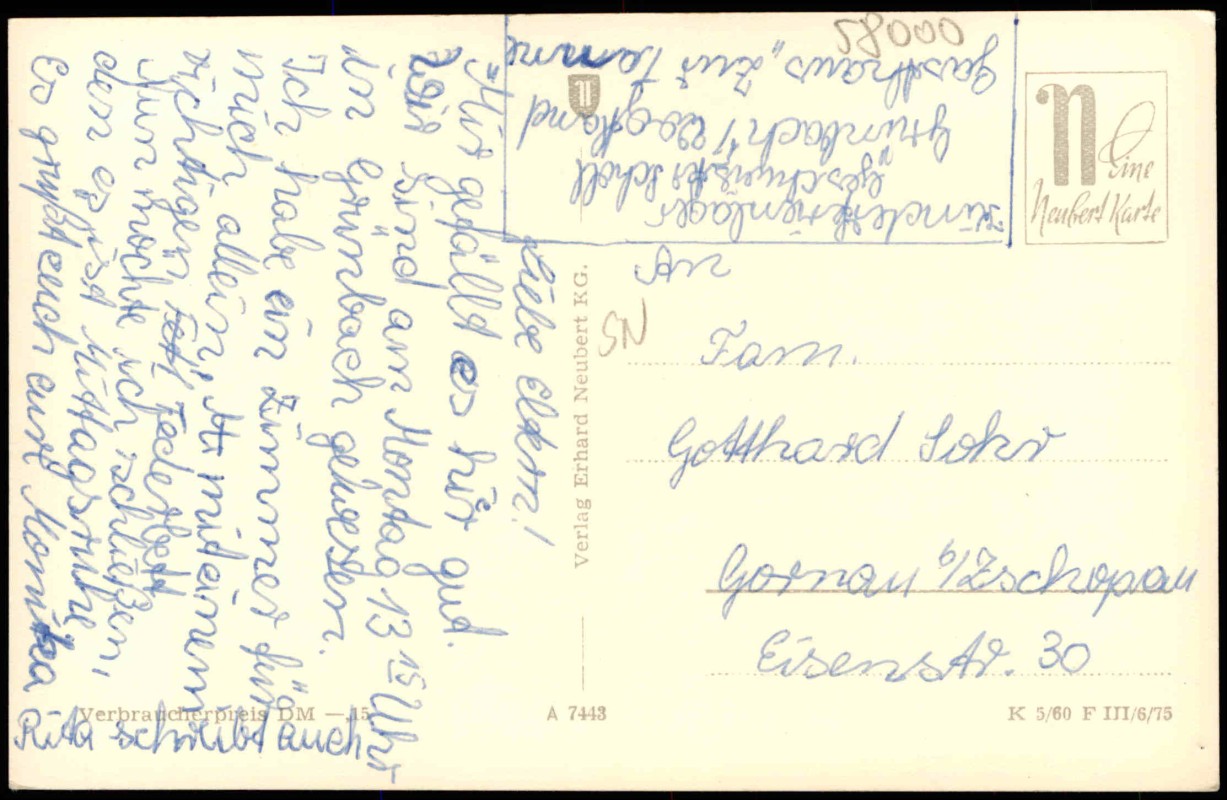 Liebe Eltern!
Mir gefällt es hir gut.
Wir sind am Montag 13 15 Uhr
in Grünbach gewesen.
Ich habe ein Zimmer für
mich allein, mit einem
richtigen Federbett
Nun möchte ich schließen,
den es ist Mittagsruhe
Es grüßt euch eure Monika
Rita schreibt auch
Kinderferienlager
"Geschwister Scholl
Grünbach / Vogtland
Gasthaus "Zur Tanne
58000
Eine
Neubert Karte
An
SN
Fam.
Gotthard Sohr
Gornau b/Zschopau
Eisenstr. 30
Verlag Erhard Neubert KG.
Verbraucherpreis DM —,15
A 7443
K 5/60 F III/6/75